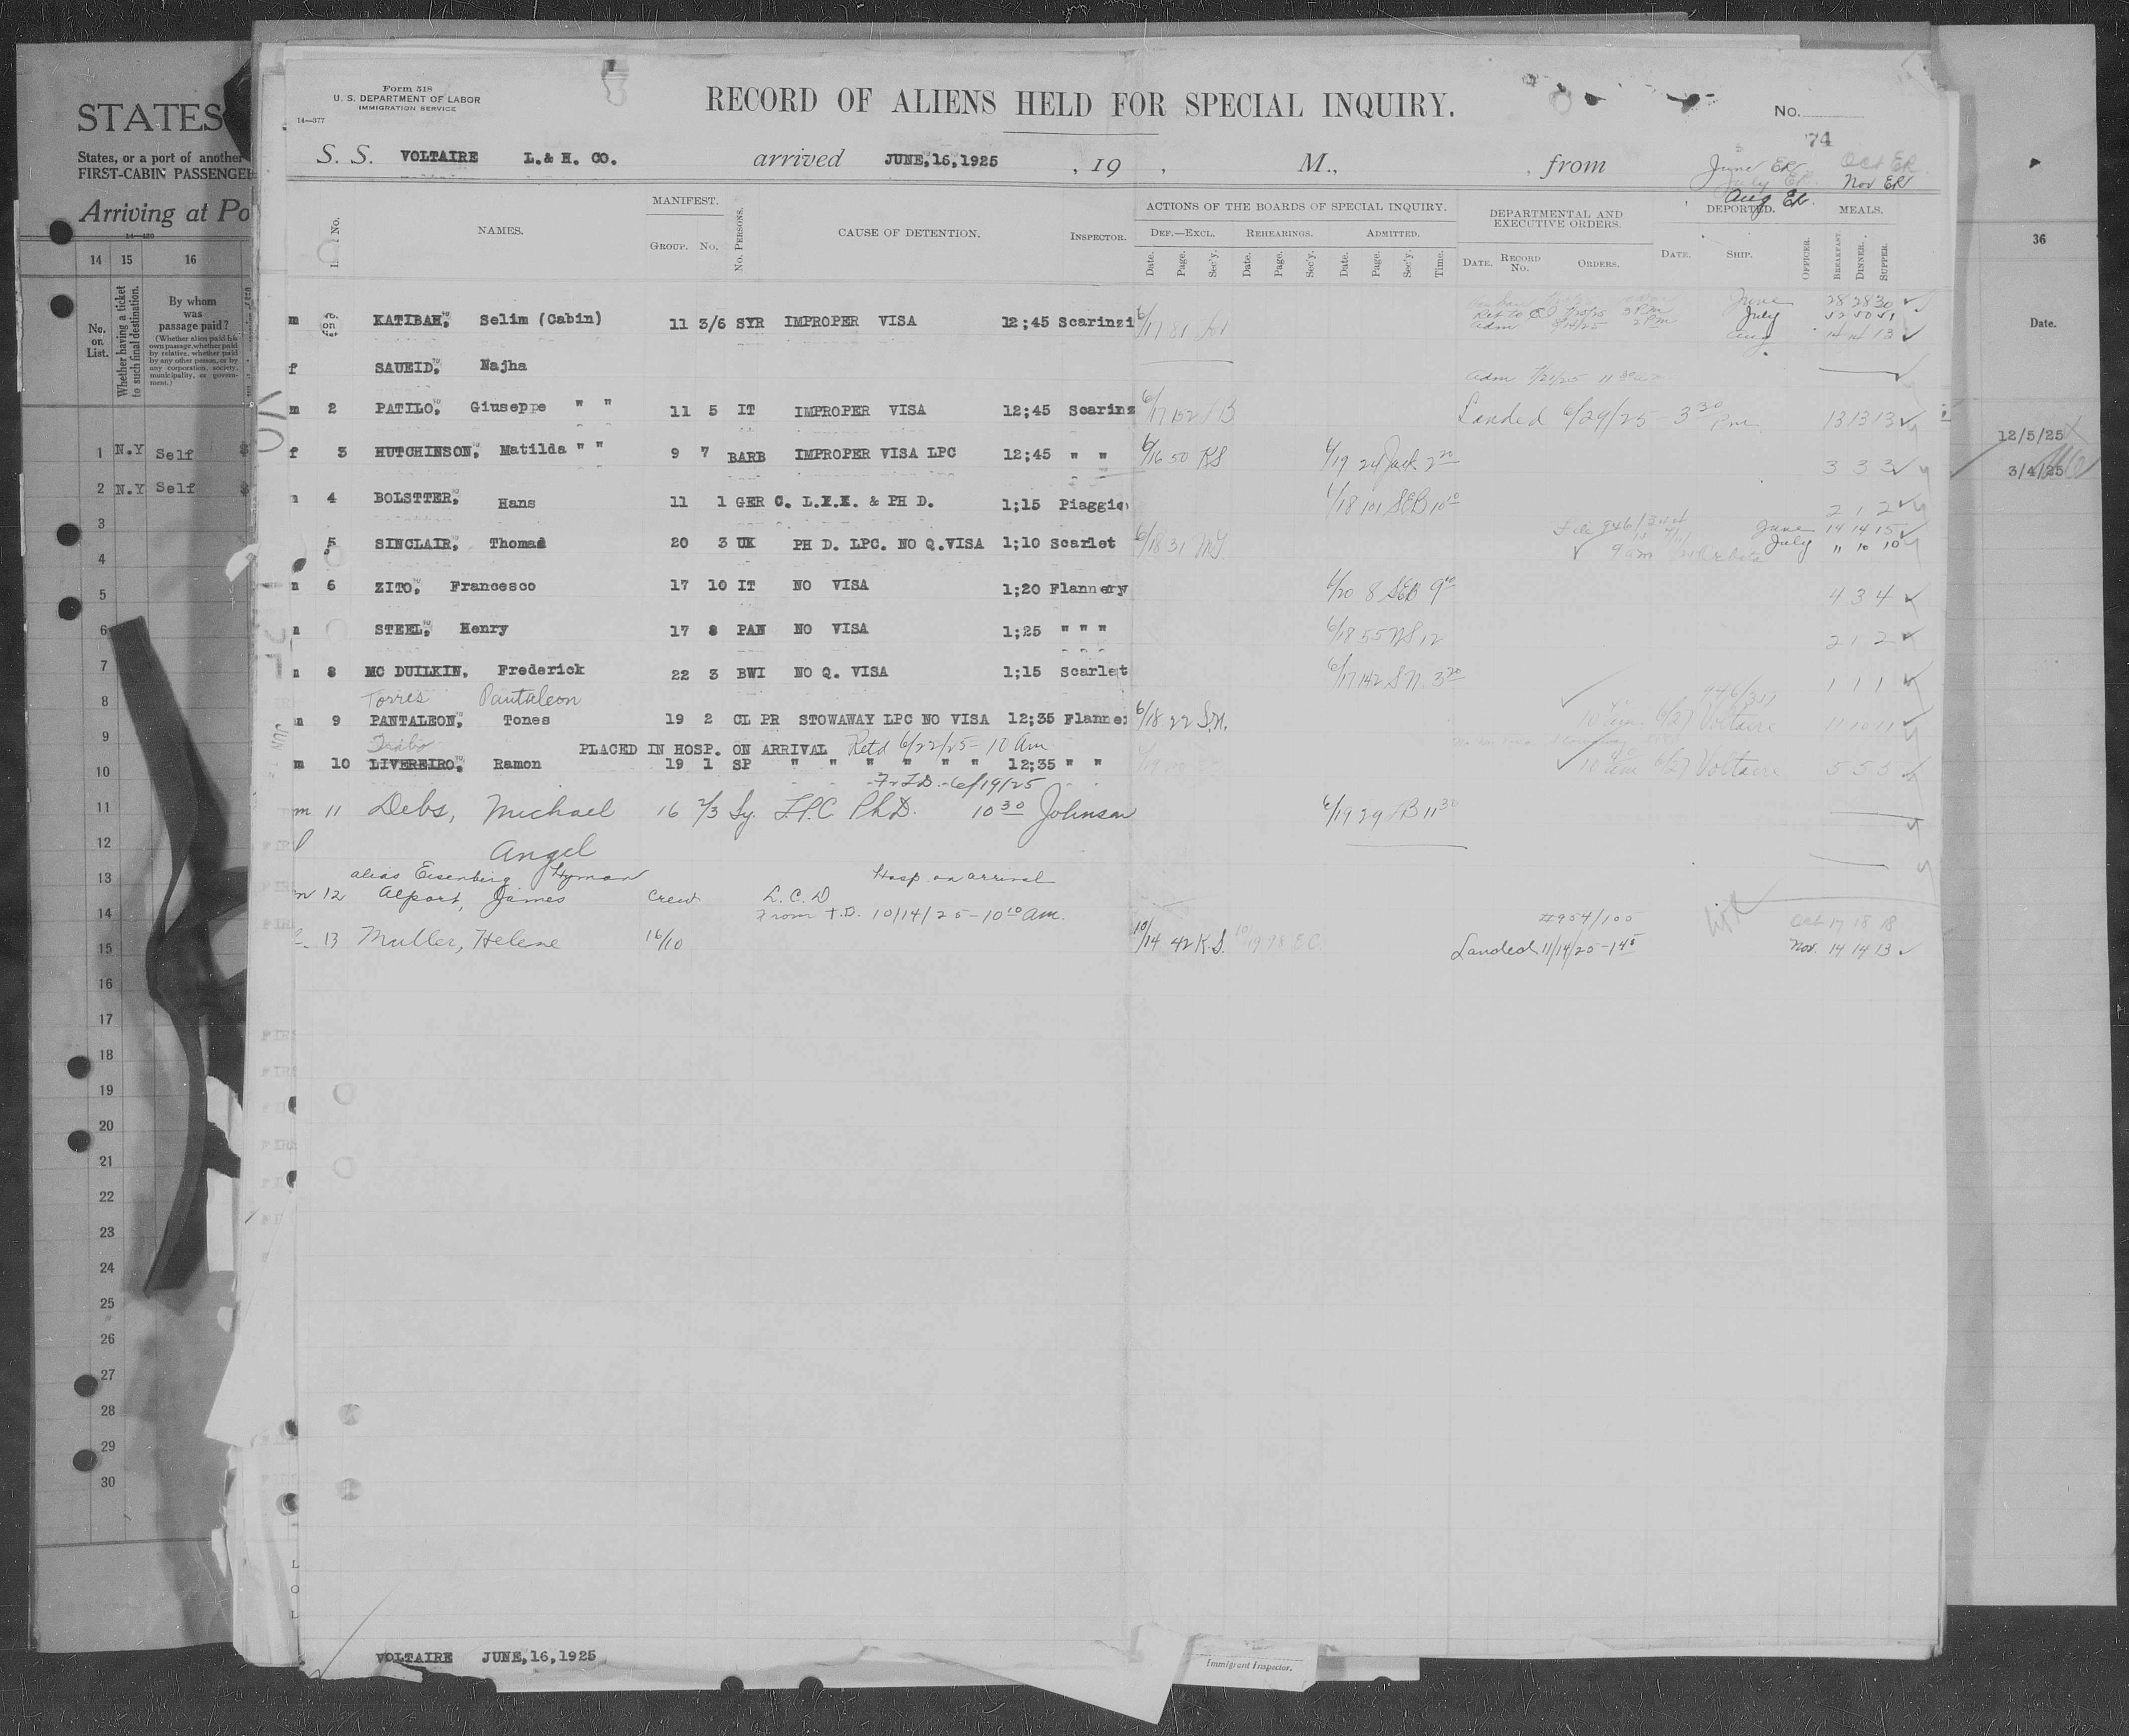 Form 518
U. S. DEPARTMENT OF LABOR
IMMIGRATION SERVICE
14—377
RECORD OF ALIENS HELD FOR SPECIAL INQUIRY.
No.
74
S. S. VOLTAIRE L. & H. CO. arrived JUNE,16,1925 , 19 , M., , from
June ER Oct ER
July ER Nov ER
Aug ER
No. NAMES. MANIFEST. GROUP. No. No. PERSONS. CAUSE OF DETENTION. INSPECTOR. ACTIONS OF THE BOARDS OF SPECIAL INQUIRY. DEF.—EXCL. Date. Page. Sec'y. REHEARINGS. Date. Page. Sec'y. ADMITTED. Date. Page. Sec'y. Time. DEPARTMENTAL AND EXECUTIVE ORDERS. DATE. RECORD No. ORDERS. DEPORTED. DATE. SHIP. OFFICER. MEALS. BREAKFAST. DINNER. SUPPER.
m KATIBAH, Selim (Cabin) 11 3/6 SYR IMPROPER VISA 12;45 Scarinzi 6/17 81 June 28 28 30
July
Adm 2 Pm Aug
f SAUEID, Najha
Adm 7/21/25 11 30 am
m 2 PATILO, Giuseppe " " 11 5 IT IMPROPER VISA 12;45 Scarinz 6/17 152 Landed 6/29/25 - 3 30 Pm 13 13 13
f 3 HUTCHINSON, Matilda " " 9 7 BARB IMPROPER VISA LPC 12;45 " " 6/16 50 KS 6/19 24 Jack 2 20 3 3 3
4 BOLSTTER, Hans 11 1 GER C. L.P.E. & PH D. 1;15 Piaggio 6/18 101 SEB 10 10 2 1 2
5 SINCLAIR, Thomas 20 3 UK PH D. LPC. NO Q.VISA 1;10 Scarlet 6/18 31 MG. File June 14 14 15
9 am July 11 10 10
6 ZITO, Francesco 17 10 IT NO VISA 1;20 Flannery 6/20 8 SEB 4 3 4
STEEL, Henry 17 8 PAN NO VISA 1;25 " " " 6/18 55 NS 12 2 1 2
8 MC DUILKIN, Frederick 22 3 BWI NO Q. VISA 1;15 Scarlet 6/17 142 S N. 3 20 1 1 1
Torres Pantaleon
9 PANTALEON, Tones 19 2 CL PR STOWAWAY LPC NO VISA 12;35 Flanne 6/18 22 S.N. 10 am 6/27 Voltaire 11 10 11
PLACED IN HOSP. ON ARRIVAL Retd 6/22/25 - 10 Am
m 10 LIVEREIRO, Ramon 19 1 SP " " " " " " 12;35 " " 10 am 6/27 Voltaire 5 5 5
Fr T.D. - 6/19/25
m 11 Debs, Michael 16 2/3 Sy. L.P.C. Ph.D. 10 30 Johnson 6/19 29 11 30
Angel
alias Eisenberg Hyman Hosp on arrival
m 12 Alport, James Crew L. C. D
From T.D. 10/14/25 - 10 10 am. #954/100
13 Muller, Helene 16/10 10/14 42 K.S. 10/19 78 E.C. Landed 11/14/25 - 1 45 Oct 17 18 18
Nov. 14 14 13
VOLTAIRE JUNE,16,1925
Immigrant Inspector.
STATES
States, or a port of another
FIRST-CABIN PASSENGE
Arriving at Po
14—430
14 15 16
No. on List.
Whether having a ticket to such final destination.
By whom was passage paid?
(Whether alien paid his own passage, whether paid by relative, whether paid by any other person, or by any corporation, society, municipality, or government.)
1 N.Y Self $
2 N.Y Self $
3
4
5
6
7
8
9
10
11
12
13
14
15
16
17
18
19
20
21
22
23
24
25
26
27
28
29
30
36
Date.
12/5/25
3/4/25